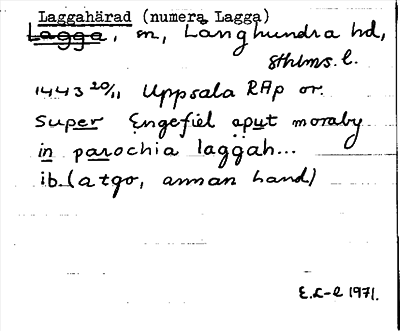 Laggahärad (numera Lagga)
Lagga, sn, Långhundra hd,
Sthlms. l.
1443 20/11 Uppsala RAp or.
super Engefiel aput moraby
in parochia laggah...
ib. (atgo, annan hand)
E.L-l 1971.